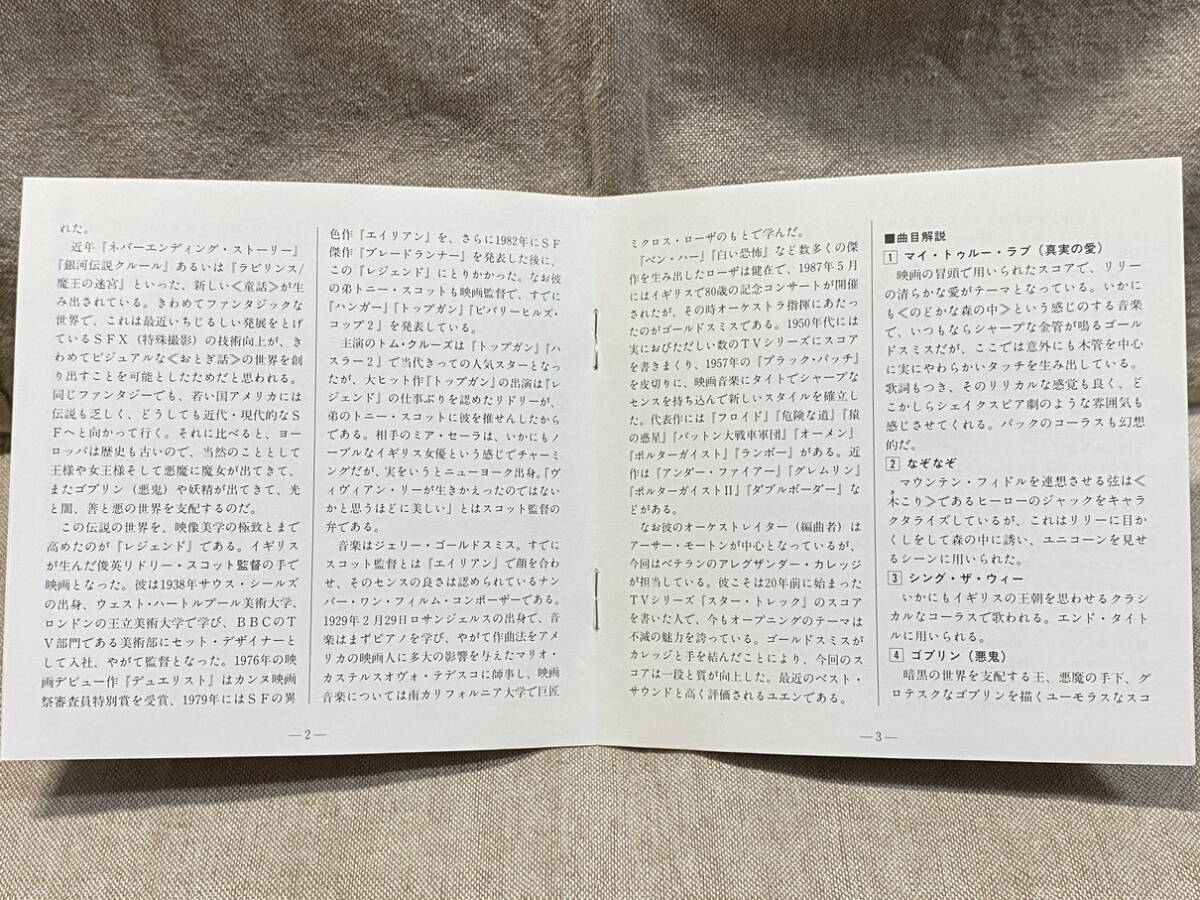 れた。
近年『ネバーエンディング・ストーリー』
『銀河伝説クルール』あるいは『ラビリンス/
魔王の迷宮』といった、新しい≪童話≫が生
み出されている。きわめてファンタジックな
世界で、これは最近いちじるしい発展をとげ
ているＳＦＸ（特殊撮影）の技術向上が、き
わめてビジュアルな≪おとぎ話≫の世界を創
り出すことを可能としたためだと思われる。
同じファンタジーでも、若い国アメリカには
伝説も乏しく、どうしても近代・現代的なＳ
Ｆへと向かって行く。それに比べると、ヨー
ロッパは歴史も古いので、当然のこととして
王様や女王様そして悪魔に魔女が出てきて、
またゴブリン（悪鬼）や妖精が出てきて、光
と闇、善と悪の世界を支配するのだ。
この伝説の世界を、映像美学の極致とまで
高めたのが『レジェンド』である。イギリス
が生んだ俊英リドリー・スコット監督の手で
映画となった。彼は1938年サウス・シールズ
の出身、ウェスト・ハートルプール美術大学、
ロンドンの王立美術大学で学び、ＢＢＣのＴ
Ｖ部門である美術部にセット・デザイナーと
して入社、やがて監督となった。1976年の映
画デビュー作『デュエリスト』はカンヌ映画
祭審査員特別賞を受賞、1979年にはＳＦの異
色作『エイリアン』を、さらに1982年にＳＦ
傑作『ブレードランナー』を発表した後に、
この『レジェンド』にとりかかった。なお彼
の弟トニー・スコットも映画監督で、すでに
『ハンガー』『トップガン』『ビバリーヒルズ・
コップ２』を発表している。
主演のトム・クルーズは『トップガン』『ハ
スラー２』で当代きっての人気スターとなっ
たが、大ヒット作『トップガン』の出演は『レ
ジェンド』の仕事ぶりを認めたリドリーが、
弟のトニー・スコットに彼を推せんしたから
である。相手のミア・セーラは、いかにもノ
ーブルなイギリス女優という感じでチャーミ
ングだが、実をいうとニューヨーク出身。『ヴ
ィヴィアン・リーが生きかえったのではない
かと思うほどに美しい』とはスコット監督の
弁である。
音楽はジェリー・ゴールドスミス。すでに
スコット監督とは『エイリアン』で顔を合わ
せ、そのセンスの良さは認められているナン
バー・ワン・フィルム・コンポーザーである。
1929年２月29日ロサンジェルスの出身で、音
楽はまずピアノを学び、やがて作曲法をアメ
リカの映画人に多大の影響を与えたマリオ・
カステルスオヴォ・テデスコに師事し、映画
音楽については南カリフォルニア大学で巨匠
—2—
ミクロス・ローザのもとで学んだ。
『ベン・ハー』『白い恐怖』など数多くの傑
作を生み出したローザは健在で、1987年５月
にはイギリスで80歳の記念コンサートが開催
されたが、その時オーケストラ指揮にあたっ
たのがゴールドスミスである。1950年代には
実におびただしい数のＴＶシリーズにスコア
を書きまくり、1957年の『ブラック・パッチ』
を皮切りに、映画音楽にタイトでシャープな
センスを持ち込んで新しいスタイルを確立し
た。代表作には『フロイド』『危険な道』『猿
の惑星』『パットン大戦車軍団』『オーメン』
『ポルターガイスト』『ランボー』がある。近
作は『アンダー・ファイアー』『グレムリン』
『ポルターガイストⅡ』『ダブルボーダー』な
どがある。
なお彼のオーケストレイター（編曲者）は
アーサー・モートンが中心となっているが、
今回はベテランのアレグザンダー・カレッジ
が担当している。彼こそは20年前に始まった
ＴＶシリーズ『スター・トレック』のスコア
を書いた人で、今もオープニングのテーマは
不滅の魅力を誇っている。ゴールドスミスが
カレッジと手を結んだことにより、今回のス
コアは一段と質が向上した。最近のベスト・
サウンドと高く評価されるユエンである。
■曲目解説
1 マイ・トゥルー・ラブ（真実の愛）
映画の冒頭で用いられたスコアで、リリー
の清らかな愛がテーマとなっている。いかに
も≪のどかな森の中≫という感じのする音楽
で、いつもならシャープな金管が鳴るゴール
ドスミスだが、ここでは意外にも木管を中心
に実にやわらかいタッチを生み出している。
歌詞もつき、そのリリカルな感覚も良く、ど
こかしらシェイクスピア劇のような雰囲気も
感じさせてくれる。バックのコーラスも幻想
的だ。
2 なぞなぞ
マウンテン・フィドルを連想させる弦は≪
木こり≫であるヒーローのジャックをキャラ
クタライズしているが、これはリリーに目か
くしをして森の中に誘い、ユニコーンを見せ
るシーンに用いられた。
3 シング・ザ・ウィー
いかにもイギリスの王朝を思わせるクラシ
カルなコーラスで歌われる。エンド・タイト
ルに用いられる。
4 ゴブリン（悪鬼）
暗黒の世界を支配する王、悪魔の手下、グ
ロテスクなゴブリンを描くユーモラスなスコ
—3—